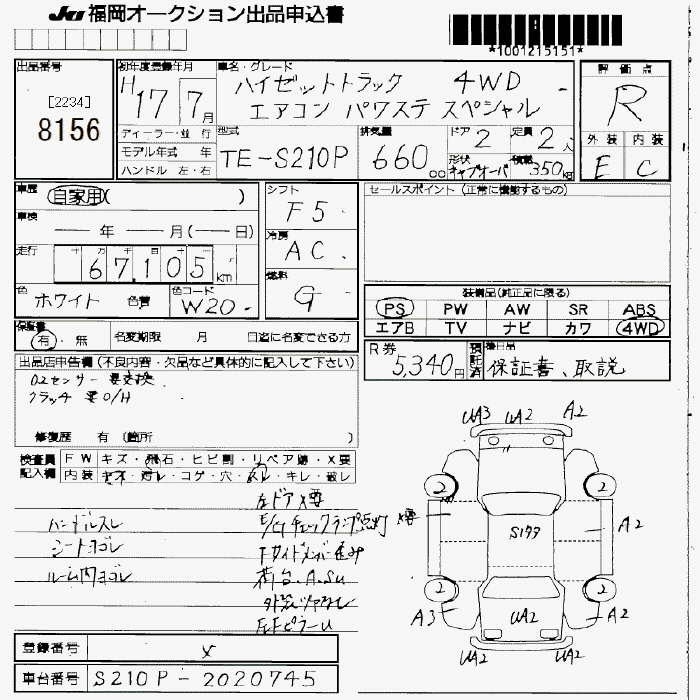 JU 福岡オークション出品申込書
*1001215151*
出品番号
[2234]
8156
初年度登録年月
H17年 7月
車名・グレード
ハイゼットトラック 4WD
エアコン パワステ スペシャル
評価点
R
外装 内装
E C
ディーラー・並行
モデル年式 年
ハンドル 左・右
型式
TE-S210P
排気量
660cc
ドア 2
定員 2人
形状 キャブオーバ
積載 350kg
車歴
自家用( )
車検
年 月(ー日)
走行
十 万 千 百 十
67,105km
色
ホワイト 色替
色コード
W20
シフト
F5
冷房
AC
燃料
G
セールスポイント(正常に機能するもの)
装備品(純正品に限る)
PS PW AW SR ABS
エアB TV ナビ カワ 4WD
保証書
有・無 名変期限 月 日迄に名変できる方
R券
5,340円
預託済
後日品
保証書、取説
出品店申告欄(不良内容・欠品など具体的に記入して下さい)
O2センサー要交換
クラッチ要O/H
修復歴 有 (箇所 )
検査員記入欄
FW キズ・飛石・ヒビ割・リペア跡・X要
内装 ヤネ・汚レ・コゲ・穴・スレ・キレ・破レ
左ドアX要
ハンドルスレ
E/Gチェックランプ点灯
シートヨゴレ
Fサイドメンバー歪み
ルーム内ヨゴレ
荷台、A.SU
外装ツヤなし
UA3 UA2 A2
2 2
X要
Sワレ
A2
2 2
A3 UA2 A2
UA2 UA2
登録番号
車台番号
S210P-2020745